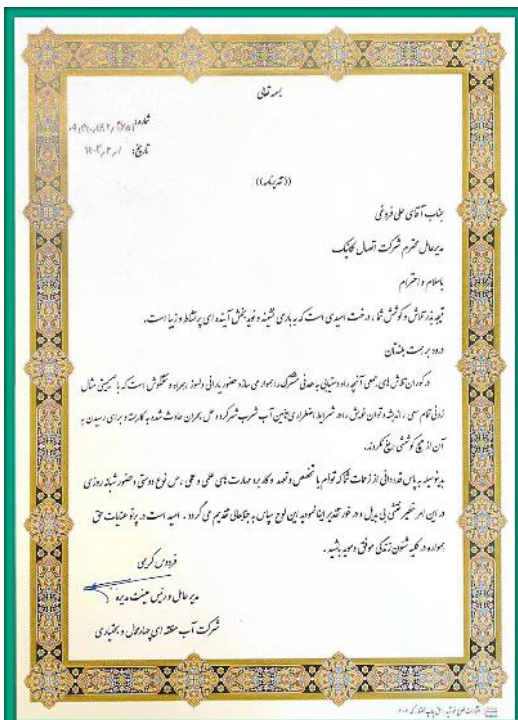 بسمه تعالی
شماره:
تاریخ: ۱۴۰۳/۲/۱
((تقدیرنامه))
جناب آقای علی فروغی
مدیرعامل محترم شرکت اتصال مکانیک
باسلام و احترام
نتیجه بذر تلاش و کوشش شما، درخت امیدی است که به بار می نشیند و نوید بخش آینده ای پرنشاط و زیبا است.
درود بر همت بلندتان
در کوران تلاش های جمعی آنچه راه دستیابی به هدفی مشترک را هموار می سازد حضور یارانی دلسوز، همراه و سختکوش است که با صمیمیتی مثال
زدنی تمام سعی، اندیشه و توان خویش را در شرایط اضطراری تامین آب شرب شهرکرد و حل بحران حادث شده به کار بسته و برای رسیدن به
آن از هیچ کوششی دریغ نکردند.
بدینوسیله به پاس قدردانی از زحمات شما که توام با تخصص و تعهد و کاربرد مهارت های علمی و عملی، حس نوع دوستی و حضور شبانه روزی
در این امر خطیر نقشی بی بدیل و در خور تقدیر ایفا نمودید این لوح سپاس به جنابعالی تقدیم می گردد. امید است در پرتو عنایات حق
همواره در کلیه شئون زندگی موفق و موید باشید.
فردوس کریمی
مدیر عامل و رئیس هیئت مدیره
شرکت آب منطقه ای چهارمحال و بختیاری